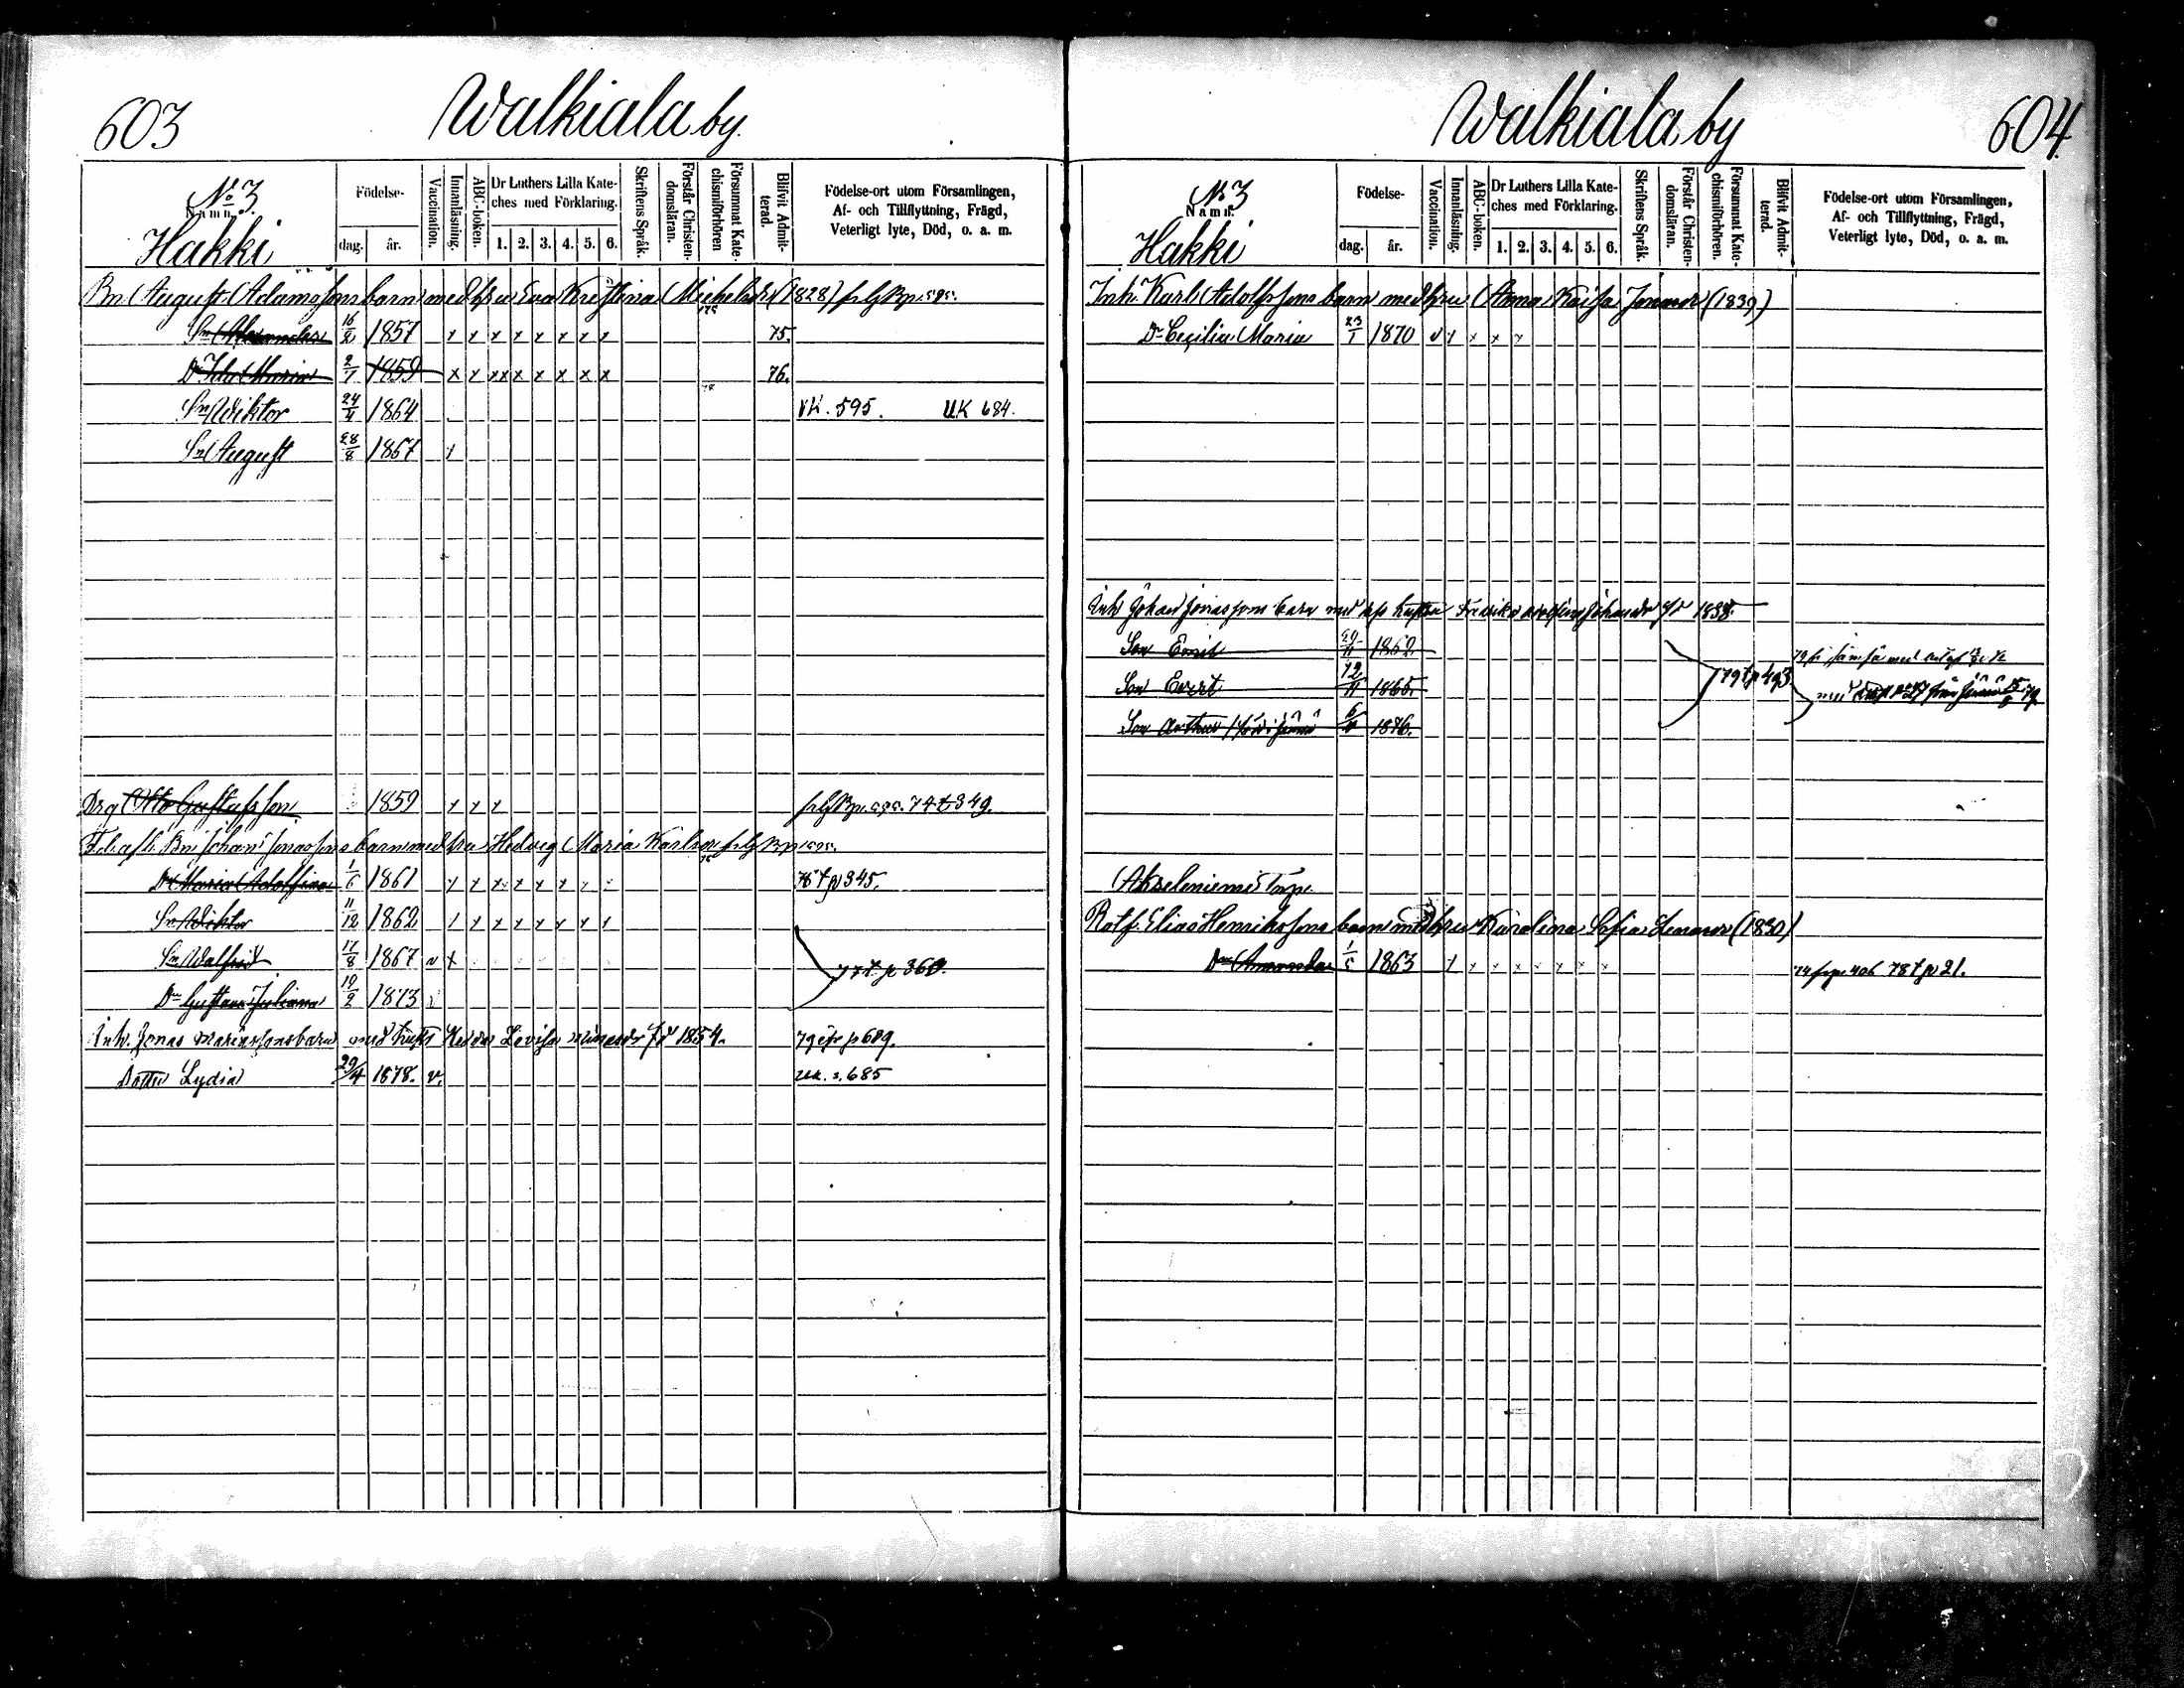 603
Walkiala by.
No 3
Namn.
Hakki
Födelse-
dag.
år.
Vaccination.
Innanläsning.
ABC-boken.
Dr Luthers Lilla Kate-
ches med Förklaring.
1. 2. 3. 4. 5. 6.
Skriftens Språk.
Förstår Christen-
domsläran.
Försummat Kate-
chismiförhören
Blifvit Admit-
terad.
Födelse-ort utom Församlingen,
Af- och Tillflyttning, Frägd,
Veterligt lyte, Död, o. a. m.
Bn August Adamssons barn med hru Eva Kristina Michelsdr (1828)
Sn Alexander 16/2 1857 x x x x x x x x 75.
Dr Ida Maria 2/7 1859 x x x x x x x x x 76.
Sn Wiktor 24/4 1864 VK. 595. UK 684.
Sn August 28/8 1867 x
Drg Otto Gustafsson 1859 x x x 74 t 349.
Bn Johan Jonassons barn med hru Hedvig Maria Karlsdr
Dr Maria Adolfina 1/6 1861 x x x x x x x x 76 t p 345.
Sn Wiktor 11/12 1862 x x x x x x x x
Sn Walfrid 17/8 1867 v x 77 t. p 360.
Dr Gustava Juliana 10/2 1873 v
Inh. Jonas barn med hust Hedda Lovisa fd 1854. 79 p 689.
Dotter Lydia 29/4 1878. v. s. 685
Walkiala by
604.
No 3
Namn.
Hakki
Födelse-
dag.
år.
Vaccination.
Innanläsning.
ABC-boken.
Dr Luthers Lilla Kate-
ches med Förklaring.
1. 2. 3. 4. 5. 6.
Skriftens Språk.
Förstår Christen-
domsläran.
Försummat Kate-
chismiförhören.
Blifvit Admit-
terad.
Födelse-ort utom Församlingen,
Af- och Tillflyttning, Frägd,
Veterligt lyte, Död, o. a. m.
Inh. Karl Adolfssons barn med hru Anna Kaisa Jonasdr (1839)
Dr Cecilia Maria 23/1 1870 v x x x x
Inh Johan Jonassons barn med Fredrika 1838.
Son Emil 1862
Son Evert 12/11 1865. 79 t p 493
Son Arthur 1876.
Akseleniemi Torp.
Rotf. Elias Henrikssons barn med hru Karolina Sofia (1830)
Dr Amanda 1/5 1863 x x x x x x x x 406 78 t p 21.